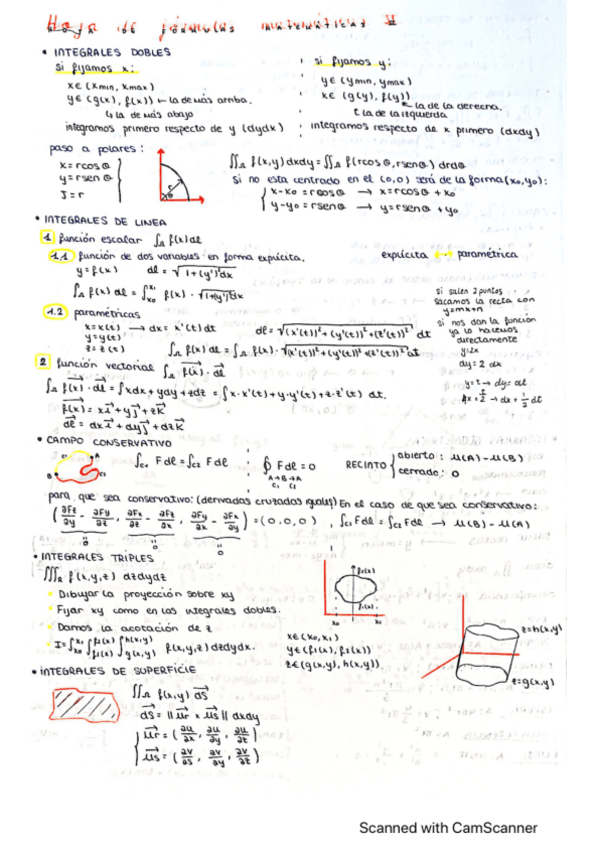 Hoja de fórmulas matemáticas II
• INTEGRALES DOBLES
si fijamos x:
x∈(xmin, xmax)
y∈(g(x), f(x)) ← la de más arriba.
↳ la de más abajo
integramos primero respecto de y (dydx)
si fijamos y:
y∈(ymin, ymax)
x∈(g(y), f(y))
↖ la de la derecha.
↳ la de la izquierda
integramos respecto de x primero (dxdy)
paso a polares:
x = rcosθ
y = rsenθ
J = r
∬_A f(x,y)dxdy = ∬_A f(rcosθ, rsenθ) drdθ
si no esta centrado en el (0,0) será de la forma (x0,y0):
x-x0 = rcosθ → x = rcosθ + x0
y-y0 = rsenθ → y = rsenθ + y0
• INTEGRALES DE LINEA
1 función escalar ∫_A f(x)dl
1.1 función de dos variables en forma explícita.
explícita paramétrica
y = f(x) dl = √1+(y')² dx
∫_A f(x) dl = ∫_x0^x1 f(x) · √1+(y')² dx
si salen 2 puntos
sacamos la recta con
y=mx+n
si nos dan la función
ya lo hacemos
directamente
y=2x
dy = 2 dx
1.2 paramétricas
x = x(t) → dx = x'(t)dt
y = y(t)
z = z(t)
dl = √(x'(t))²+(y'(t))²+(z'(t))² dt
∫_A f(x)dl = ∫_A f(x) · √(x'(t))²+(y'(t))²+(z'(t))² dt
2 función vectorial ∫_A f(x) · dl
∫_A f(x) · dl = ∫xdx + ydy + zdz = ∫x·x'(t) + y·y'(t) + z·z'(t) dt.
y=t → dy = dt
x = t/2 → dx = 1/2 dt
f(x) = xi + yj + zk
dl = dxi + dyj + dzk
• CAMPO CONSERVATIVO
A
B
∫_C1 Fdl = ∫_C2 Fdl
∮ Fdl = 0
A→B→A
C1 C2
RECINTO
abierto: u(A) - u(B)
cerrado: 0
para que sea conservativo: (derivadas cruzadas iguales) En el caso de que sea conservativo:
(∂Fz/∂y - ∂Fy/∂z, ∂Fx/∂z - ∂Fz/∂x, ∂Fy/∂x - ∂Fx/∂y) = (0,0,0), ∫_C1 Fdl = ∫_C2 Fdl → u(B) - u(A)
0 0 0
• INTEGRALES TRIPLES
∭_A f(x,y,z) dzdydz
• Dibujar la proyección sobre xy
• Fijar xy como en las integrales dobles.
• Damos la acotación de z
• I = ∫_x0^x1 ∫_f1(x)^f2(x) ∫_g(x,y)^h(x,y) f(x,y,z) dzdydx.
f2(x)
f1(x)
x0 x1
x∈(x0, x1)
y∈(f1(x), f2(x))
z∈(g(x,y), h(x,y))
z=h(x,y)
z=g(x,y)
• INTEGRALES DE SUPERFICIE
∬_A f(x,y) dS
dS = ||ur × us|| dxdy
ur = (∂u/∂x, ∂u/∂y, ∂u/∂z)
us = (∂v/∂s, ∂v/∂y, ∂v/∂z)
Scanned with CamScanner